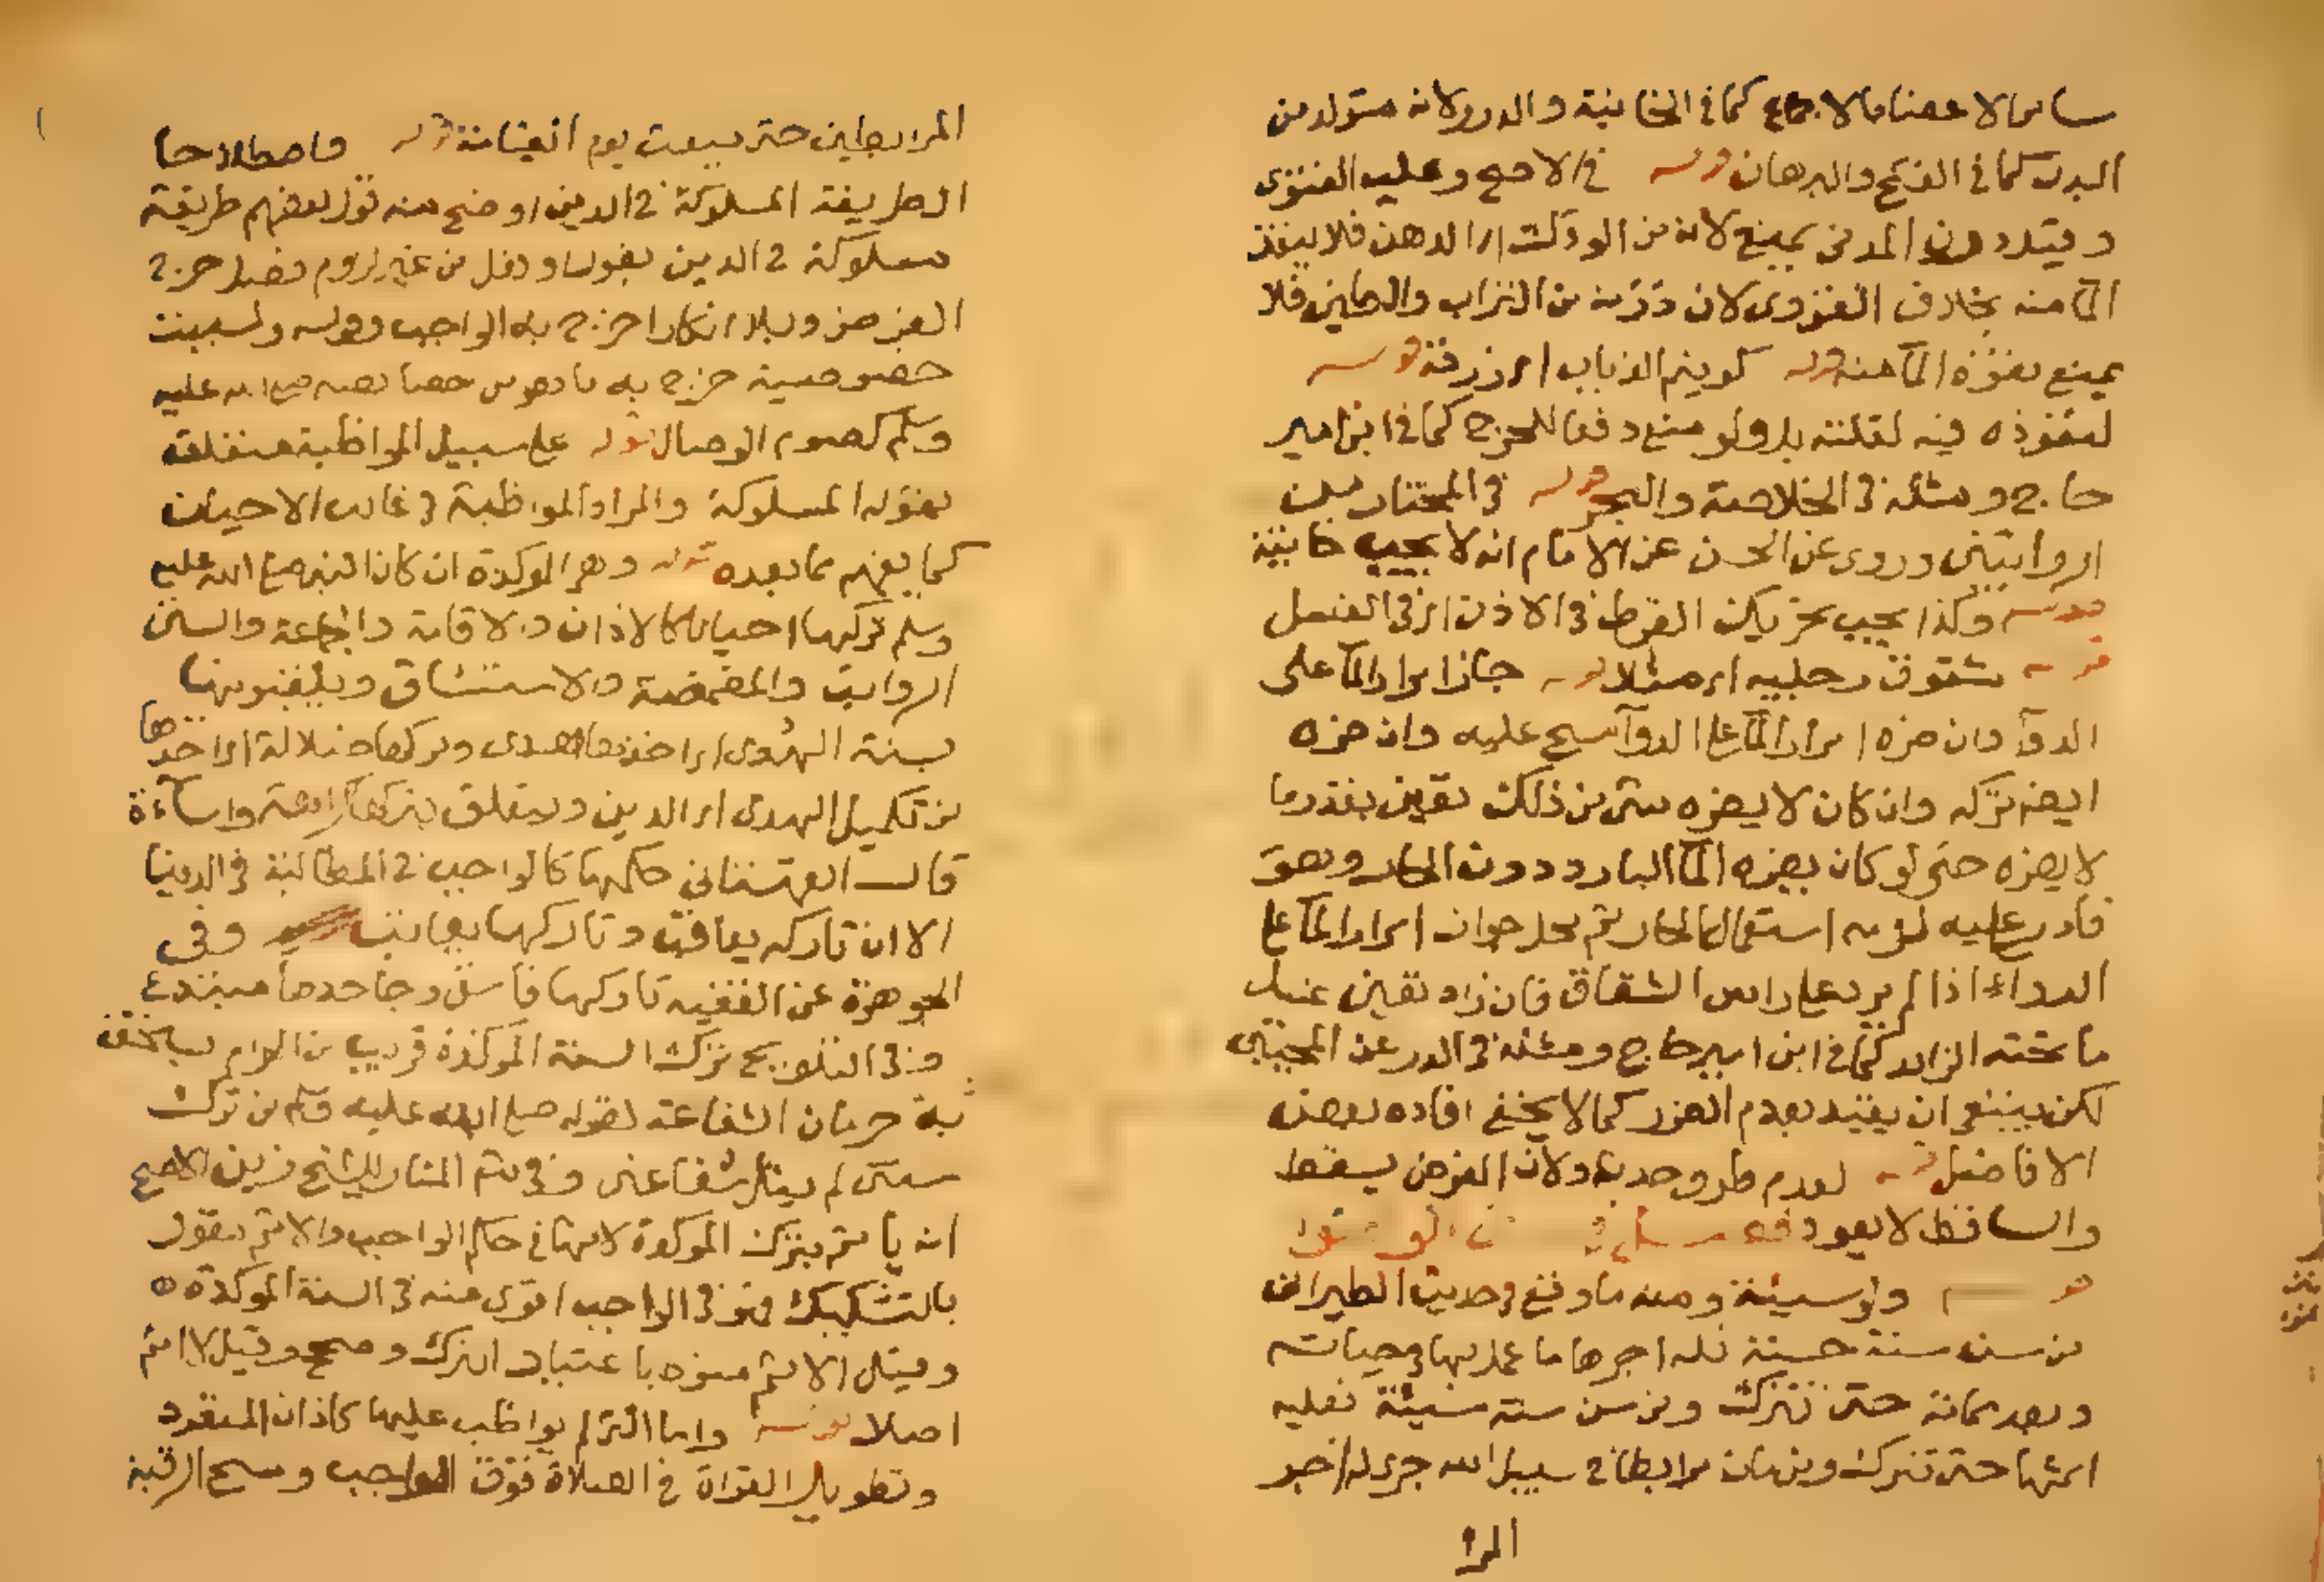 سائر الاعضاء بالاجماع كما في الخانية والدرر ولانه متولد من
البدن كما في الفتح والبرهان قوله في الاصح وعليه الفتوى
وقيد درن المدني يمنع لانه من الودك اي الدهن فلا ينفذ
الماء منه بخلاف القروي لان درنه من التراب والطين فلا
يمنع نفوذ الماء منه قوله كونيم الذباب اي زرقه قوله
لنفوذه فيه لقلته بل ولو منع دفعا للحرج كما في ابن امير
حاج ومثله في الخلاصة والبحر قوله في المختار من
الروايتين وروى عن الحسن عن الامام انه لا يجب خانية
قوله وكذا يجب تحريك القرط في الاذن اي في الغسل
قوله شقوق رجليه اي مثلا قوله جاز امرار الماء على
الدواء وان ضره امرار الماء على الدواء مسح عليه وان ضره
ايضا تركه وان كان لا يضره شئ من ذلك تعين بقدر ما
لا يضره حتى لو كان يضره الماء البارد دون الحار وهو
قادر عليه لزمه استعمال الحار ثم محل جواز امرار الماء على
الدواء اذا لم يزد على راس الشقاق فان زاد تعين غسل
ما تحته الزائد كما في ابن امير حاج ومثله في الدر عن المجتبى
لكن ينبغي ان يقيد بعدم الضرر كما لا يخفى افاده بعض
الافاضل قوله لعدم طرو حدث به ولان الفرض يسقط
والساقط لا يعود
ولو سيئة ومنه ما وقع في حديث الطبراني
من سن سنة حسنة فله اجرها ما عمل بها في حياته
وبعد مماته حتى تترك ومن سن سنة سيئة فعليه
اثمها حتى تترك ومن مات مرابطا في سبيل الله جرى له اجر
المرا
المرابطين حتى يبعث يوم القيامة قوله واصطلاحا
الطريقة المسلوكة في الدين اوضح منه قول بعضهم طريقة
مسلوكة في الدين بقول او فعل من غير لزوم فصل خرج
الفرض وبلا انكار اخرج به الواجب وقوله وليست
خصوصية خرج به ما هو من خصائصه صلى الله عليه
وسلم كصوم الوصال قوله على سبيل المواظبة متعلقة
بقوله المسلوكة والمراد المواظبة في غالب الاحيان
كما يفهم مما بعده قوله وهي الموكدة ان كان النبي صلى الله عليه
وسلم تركها احيانا كالاذان والاقامة والجماعة والسنن
الرواتب والمضمضة والاستنشاق ويلقبونها
بسنة الهدى اي اخذها هدى وتركها ضلالة اي اخذها
من تكميل الهدى اي الدين ويتعلق بتركها كراهة واساءة
قال القهستاني حكمها كالواجب في المطالبة في الدنيا
الا ان تاركه يعاقب وتاركها يعاتب وفي
الجوهرة عن الفقيه تاركها فاسق وجاحدها مبتدع
وفي التلويح ترك السنة الموكدة قريب من الحرام يستحق
به حرمان الشفاعة لقوله صلى الله عليه وسلم من ترك
سنتي لم ينل شفاعتي وفي شرح المنار للشيخ زين الاصح
انه يأثم بترك الموكدة لانها في حكم الواجب والاثم مقول
بالتشكيك فهو في الواجب اقوى منه في السنة الموكدة ه
وقيل الاثم منوط باعتياد الترك وصحح وقيل لا اثم
اصلا قوله واما التي لم يواظب عليها كاذان المنفرد
وتطويل القراة في الصلاة فوق الواجب ومسح الرقبة